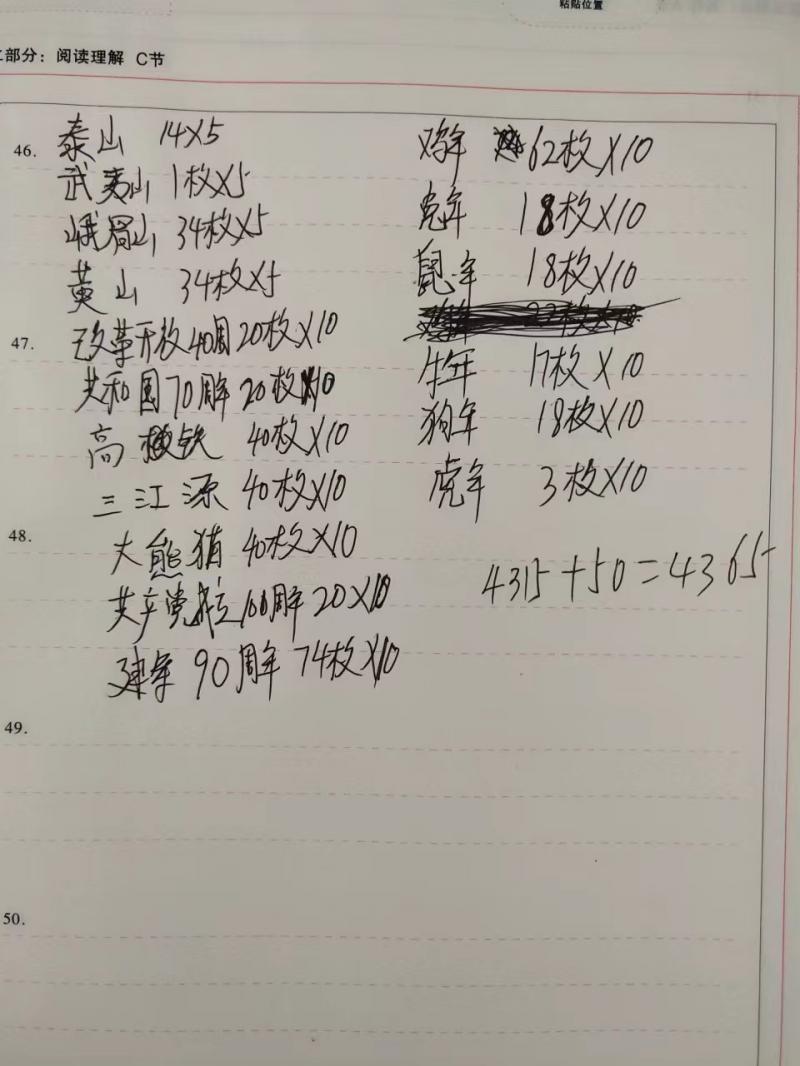 粘贴位置
部分：阅读理解 C节
46.
泰山 14X5
武夷山 1枚X5
峨眉山 34枚X5
黄山 34枚X5
47.
改革开放40周 20枚X10
共和国70周年 20枚X10
高铁 40枚X10
三江源 40枚X10
48.
大熊猫 40枚X10
共产党成立100周年 20X10
建军90周年 74枚X10
49.
50.
鸡年 62枚X10
兔年 18枚X10
鼠年 18枚X10
牛年 17枚X10
狗年 18枚X10
虎年 3枚X10
4315+50=4365